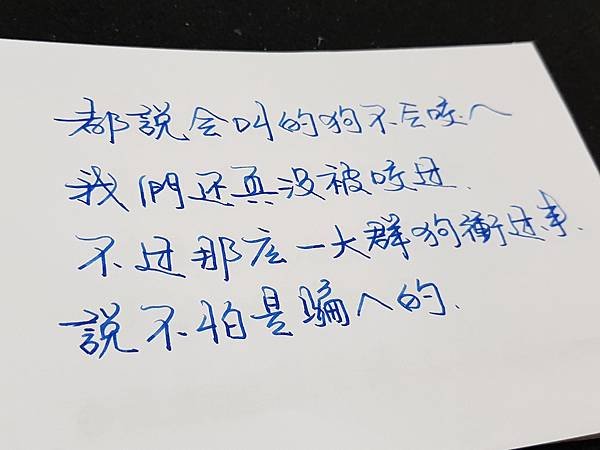 都說会叫的狗不会咬人
我們还真没被咬过.
不过那麼一大群狗衝过来.
說不怕是騙人的.